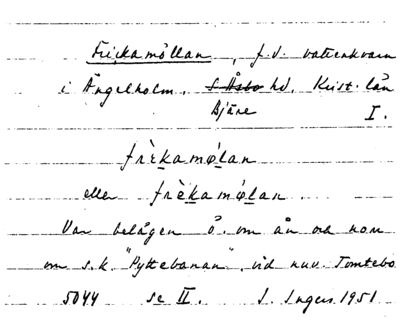 Frickamöllan, f.d. vattenkvarn
i Ängelholm, S. Åsbo hd, Krist. län
Bjäre I.
frèkamø̀lan
eller frèkamø̀lan
Var belägen ö. om ån och norr
om s.k. "Pyttebanan", vid nuv. Tomtebo
5044 se II. I. Ingers 1951